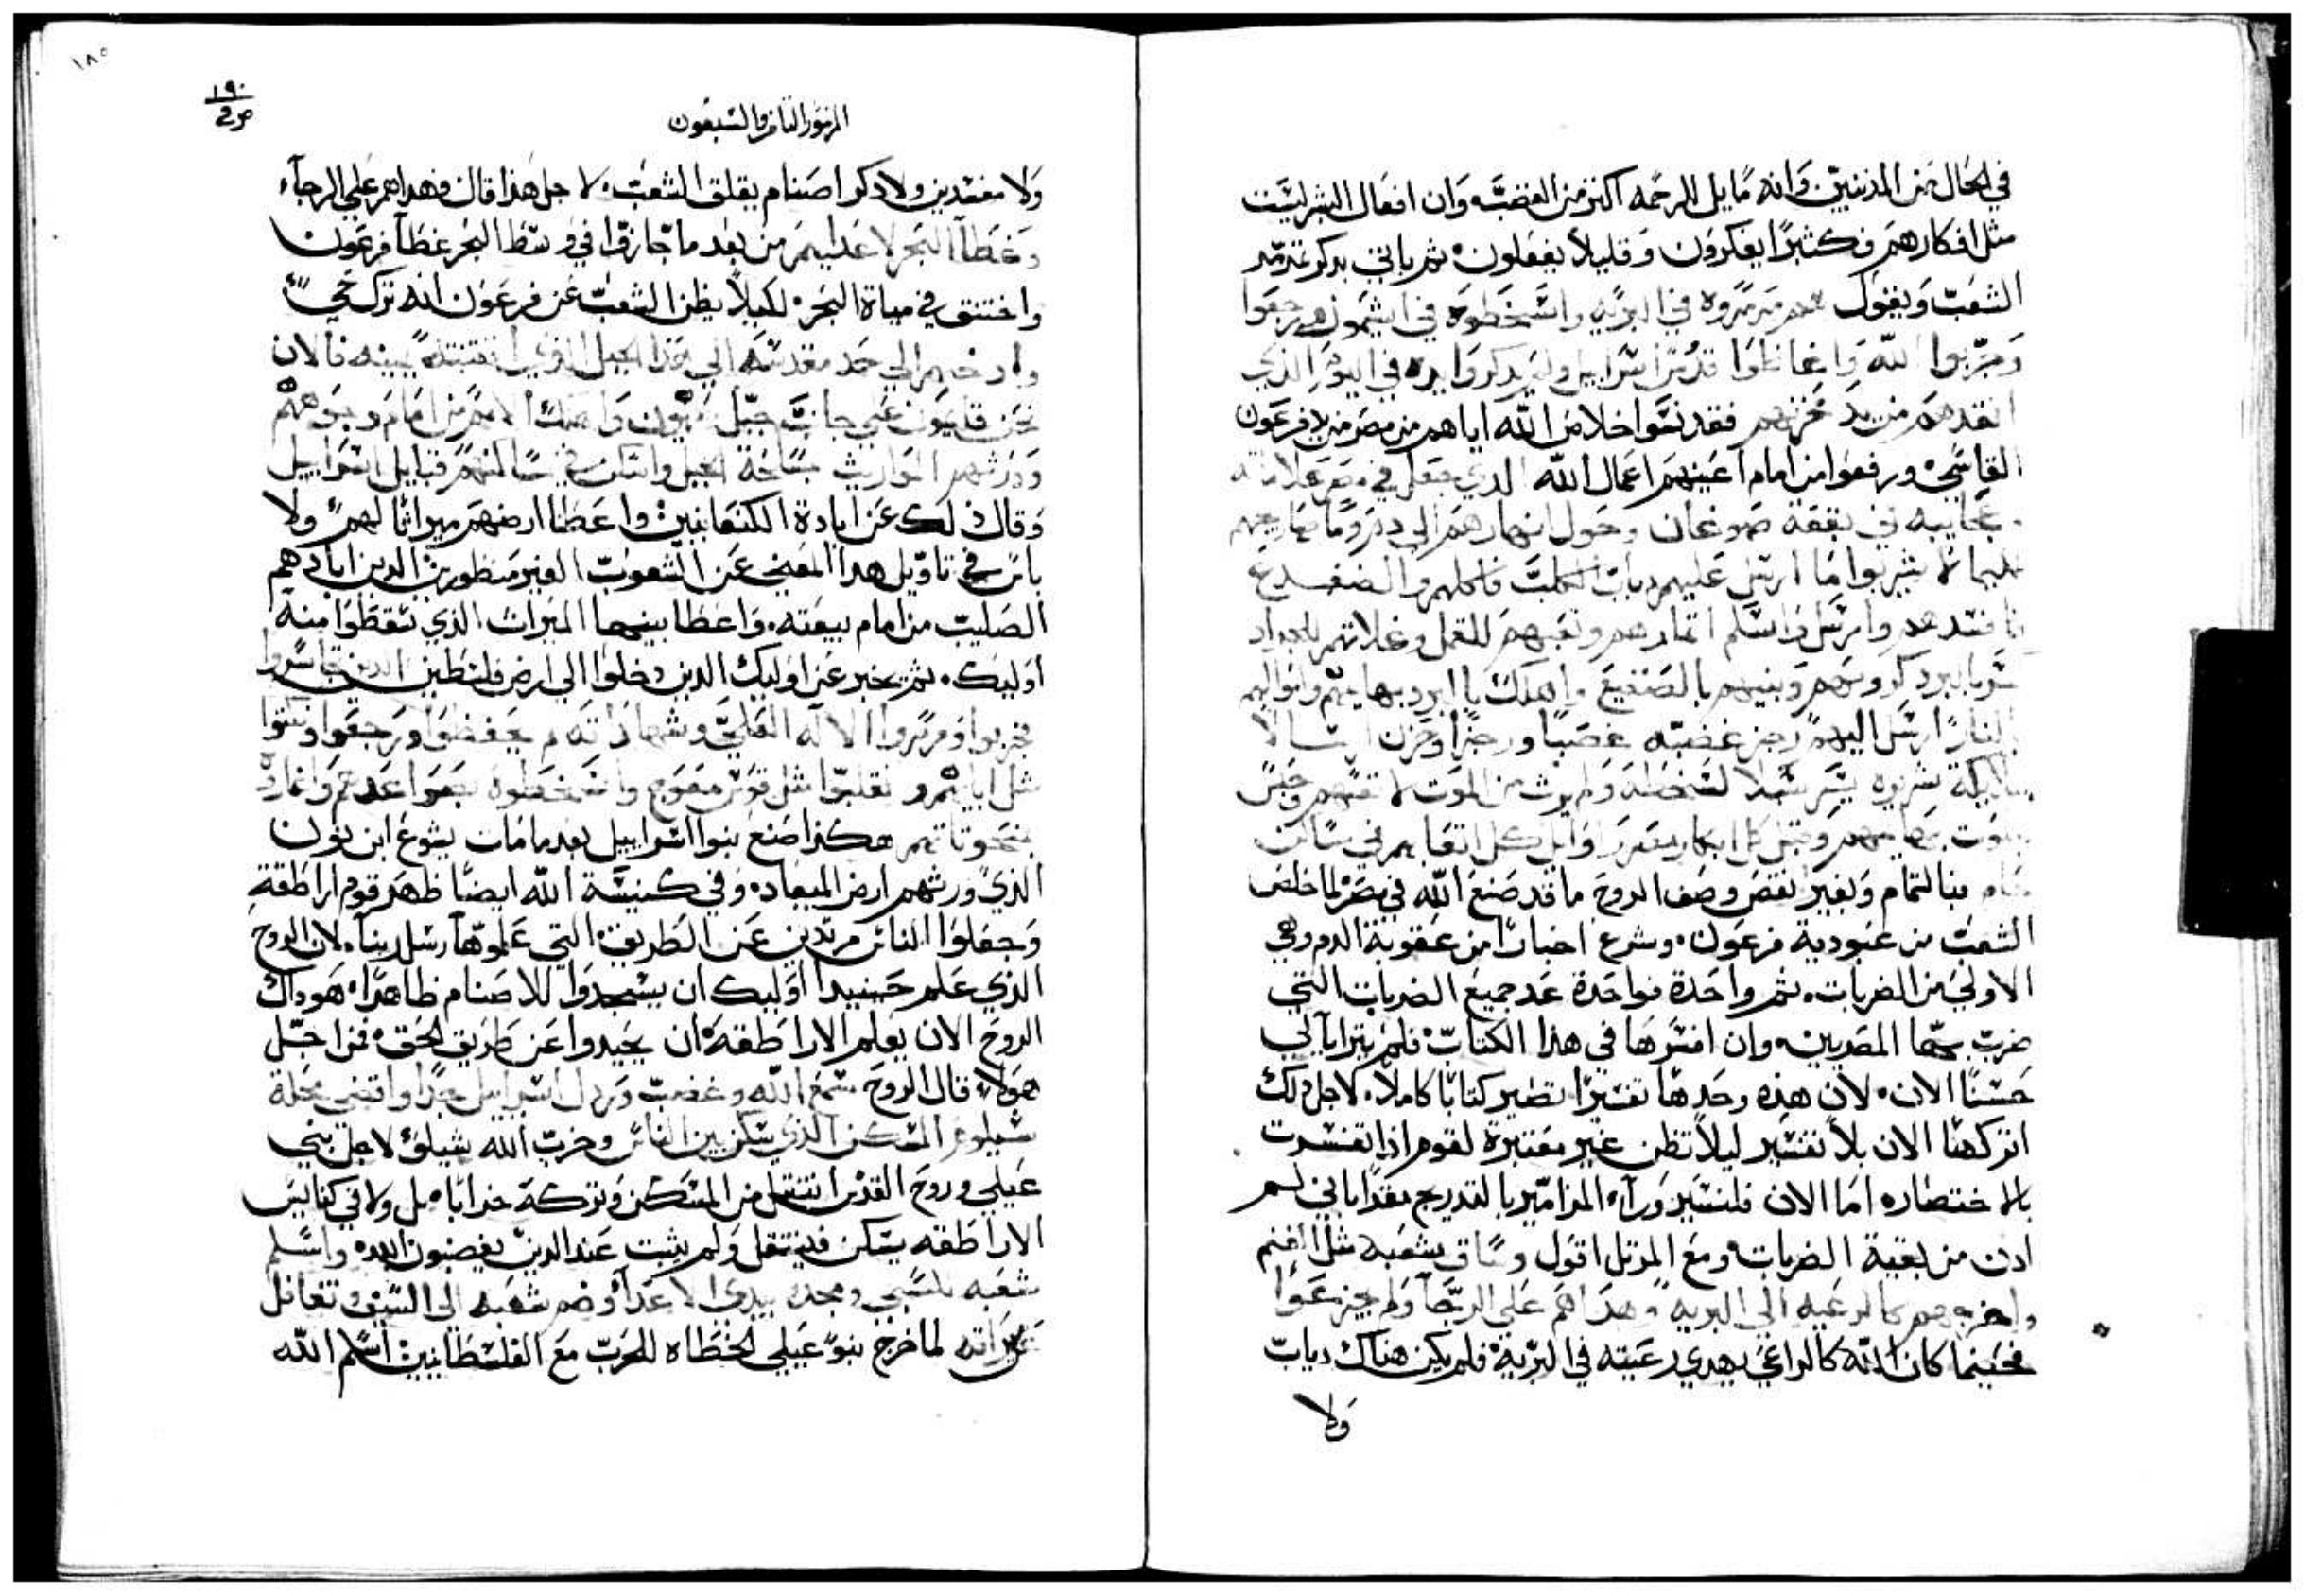 في الحال من المذنبين وانه مايل للرحمه اكثر من الغضب وان افعال البشر ليست
مثل افكارهم فكثيرًا يفكرون وقليلاً يفعلون ثم ياتي بدكر تمرمر
الشعب ويقول مرمروه في البريه واسخطوه في اشيمون رجعوا
وجربوا الله واغاظوا قدوس اسراييل ولم يدكروا يده في اليوم الذي
انقدهم من يد محزنهم فقد نسوا خلاص الله اياهم من مصر من يد فرعون
القاسي ورفعوا من امام اعينهم اعمال الله الدي جعل في مصر علاماته
وعجايبه في بقعة صوعان وحول انهارهم الى دم
لكيما لا يشربوا ارسل عليهم دباب الكلب فاكلهم والضفدع
فافسدهم واسلم اتمارهم وتعبهم للقمل وغلاتهم للجراد
وتينهم بالصقيع واهلك بالبرد بهايمهم واموالهم
بالنار ارسل اليهم رجز غضبه غضبًا ورجزًا وحزن
ملايكة شريره سهلا لسخطه ولم من الموت انفسهم وحبس
في الموت بهايمهم وقتل كل ابكار مصر واوايل كل اتعابهم في مساكن
حام بالتمام وبغير نقص وصف الروح ما قد صنع الله في مصر لما خلص
الشعب من عبودية فرعون وشرع اخبارًا من عقوبة الدم وهي
الاولى من الضربات ثم واحدة فواحدة عد جميع الضربات التي
ضرب بها المصريين وان افسرها في هدا الكتاب فلم يترايا لي
حسنًا الان لان هذه وحدها تفسيرًا تصير كتابًا كاملاً لاجل دلك
اتركها الان بلا تفسير ليلا تظن غير معتبرة لقوم اذا تفسرت
بالاختصار اما الان فلنسير ورآء المزامير بالتدريج
ادن من بقية الضربات ومع المرتل اقول وساق شعبه مثل الغنم
واخرجهم كالرعيه الى البريه وهداهم على الرجآ ولم يجزعوا
فحينما كان الله كالراعي يهدي رعيته في البرية فلم يكن هناك دياب
ولا
١٨٥
١٩٠
المزمور الثامن والسبعون
ولا مفسدين ولا دكر اصنام يقلق الشعب لاجل هذا قال فهداهم على الرجآء
وغطا البحر لاعدايهم من بعد ما جازوا في وسط البحر غطا فرعون
واختنق في مياة البحر لكيلاً يظن الشعب عن فرعون انه ترك حي
وادخلهم الى حد مقدسه الى هذا الجبل الذي اقتنته يمينه فالان
نحن قايمون على جانب جبل صهيون واهلك الامم من امام وجوههم
وورثهم المواريث واسكن في مساكنهم قبايل اسراييل
وقال ذلك عن ابادة الكنعانيين واعطا ارضهم ميراثًا لهم ولا
باس في تاويل هدا المعنى عن الشعوب الغير منظورين الدين ابادهم
الصليب من امام بيعته واعطا بينها الميراث الذي سقطوا منه
اوليك ثم يخبر عن اوليك الدين دخلوا الى ارض فلسطين
فجربوا ومرمروا الاله العلي وشهاداته لم يحفظوا ورجعوا ونكثوا
مثل ابايهم وتقلبوا مثل قوس معوج واسخطوه واغاروه
بمنحوتاتهم هكذا صنع بنوا اسراييل بعدما مات يشوع ابن نون
الذي ورثهم ارض الميعاد وفي كنيسة الله ايضًا ظهر قوم اراطقة
وجعلوا الناس مرتدين عن الطريق التي علموها رسل ربنا لان الروح
الذي علم حينيدا اوليك ان يسجدوا للاصنام ظاهرًا هو داك
الروح الان يعلم الاراطقه ان يحيدوا عن طريق الحق فمن اجل
هولاء قال الروح سمع الله وغضب وردل اسراييل جدًا واقصى محلة
شيلوم المسكن الذي سكن بين الناس وخرب الله شيلو لاجل بني
عيلي وروح القدس انتقل من المسكن وتركه خرابًا بل ولا في كنايس
الاراطقه يسكن فينتقل ولم يثبت عند الدين يغضبون الله واسلم
شعبه للسبي ومجده بيدي الاعدآ وضم شعبه الى السيف وتغافل
عن ميراته لما خرج بنو عيلي الخطاه للحرب مع الفلسطانيين اسلم الله